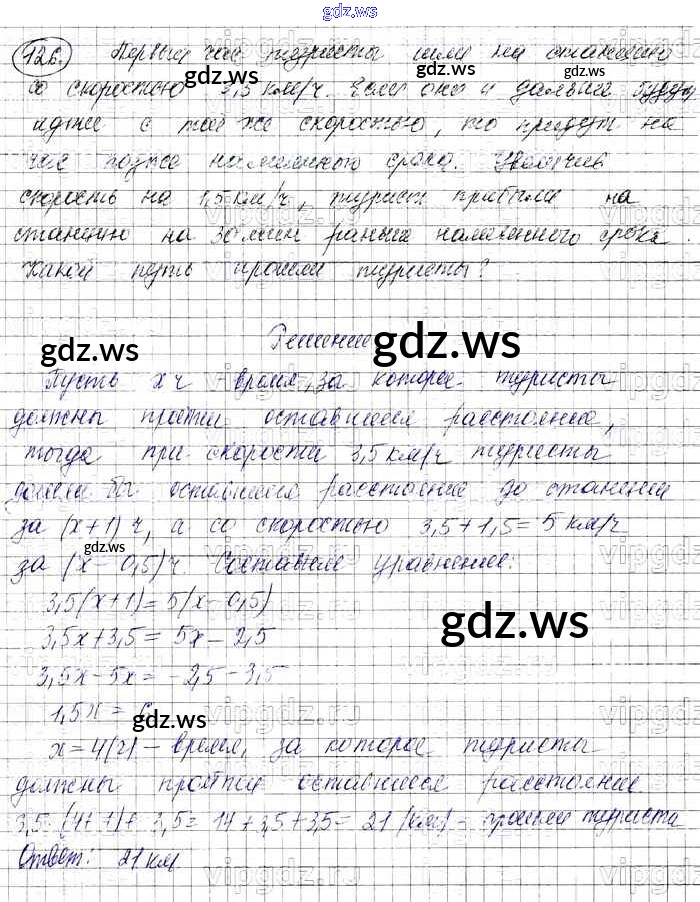 gdz.ws
126. Первый час туристы шли на станцию
gdz.ws gdz.ws
со скоростью 3,5 км/ч. Если они и дальше будут
идти с той же скоростью, то придут на
час позже намеченного срока. Увеличив
gdz.ws gdz.ws
скорость на 1,5 км/ч, туристы прибыли на
станцию на 30 мин раньше намеченного срока.
Какой путь прошли туристы?
Решение
gdz.ws gdz.ws
Пусть x ч – время, за которое туристы
должны пройти оставшееся расстояние,
тогда при скорости 3,5 км/ч туристы
дошли бы оставшееся расстояние до станции
за (x+1) ч, а со скоростью 3,5+1,5=5 км/ч
gdz.ws
за (x-0,5) ч. Составим уравнение:
3,5(x+1)=5(x-0,5)
gdz.ws
3,5x+3,5=5x-2,5
3,5x-5x=-2,5-3,5
1,5x=6
gdz.ws
x=4(ч) – время, за которое туристы
должны пройти оставшееся расстояние
gdz.ws gdz.ws
3,5·(4+1)+3,5=14+3,5+3,5=21(км) – прошли туристы
Ответ: 21 км
vipgdz.ru